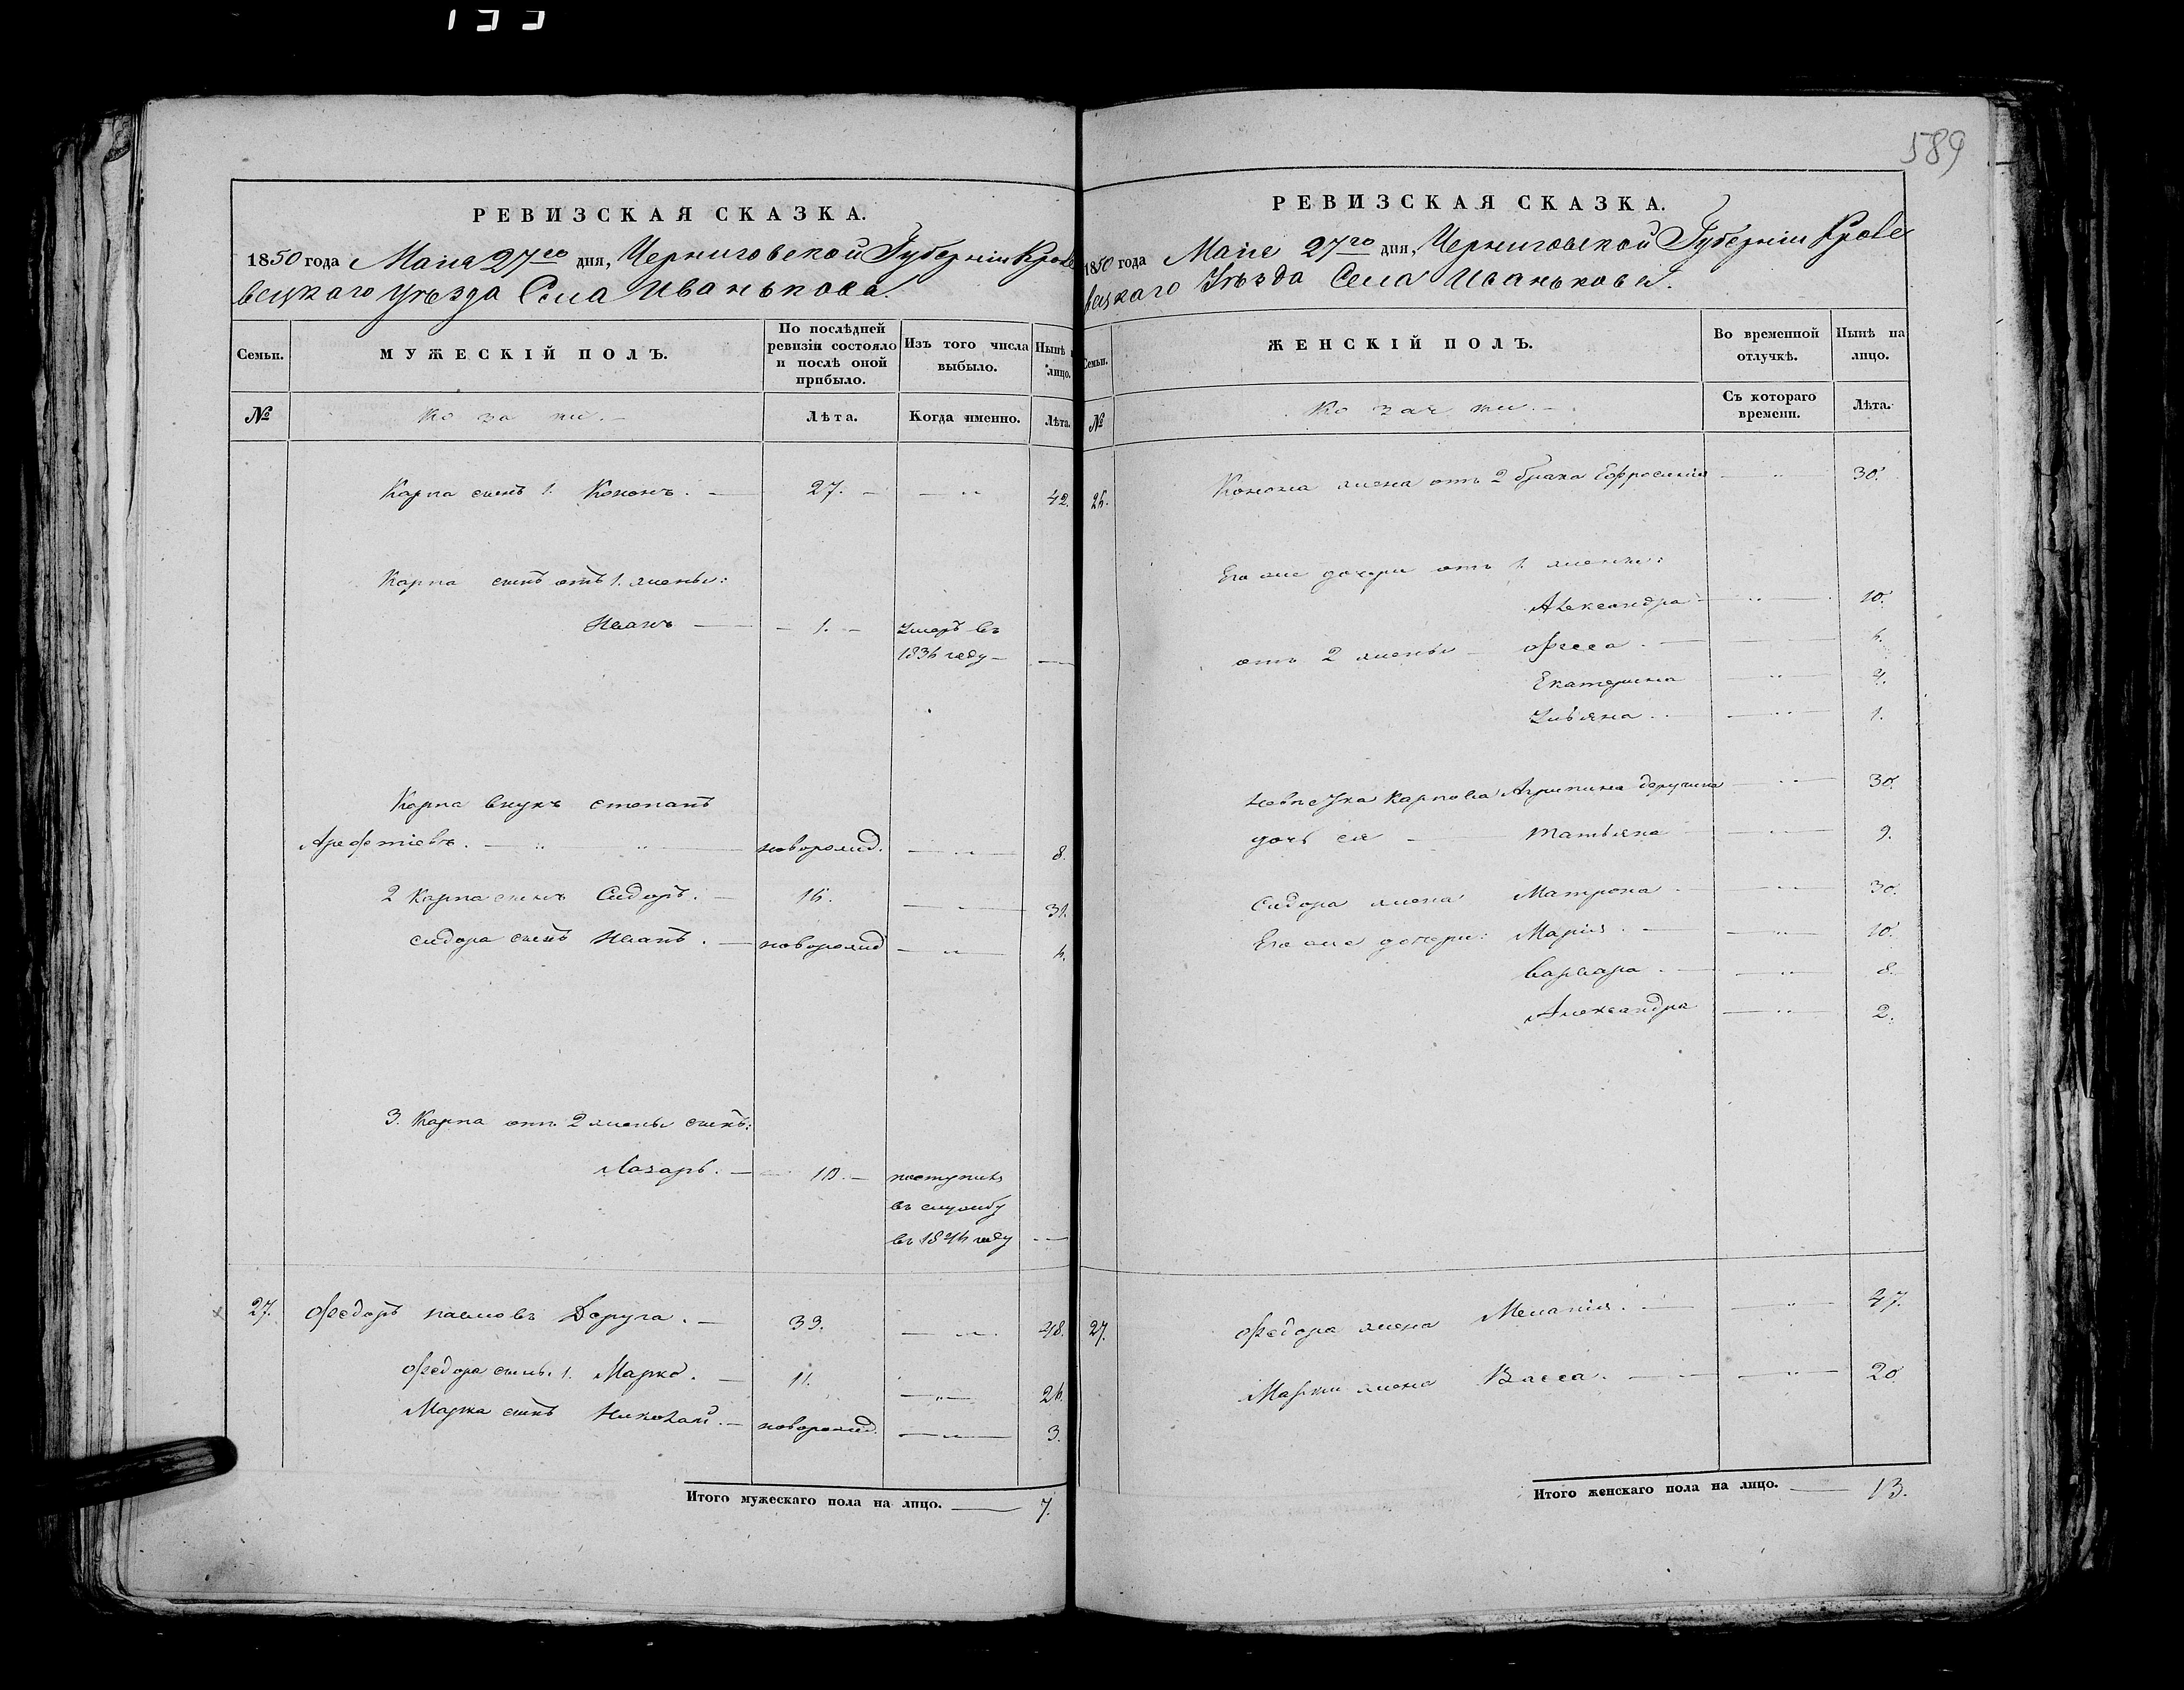 589
РЕВИЗСКАЯ СКАЗКА.
1850 года Маия 27го дня, Черниговской Губерніи Кроле
вецкаго уѣзда Села Иванькова.
Семьи. МУЖЕСКІЙ ПОЛЪ. По послѣдней ревизіи состояло и послѣ оной прибыло. Изъ того числа выбыло. Нынѣ лицо.
№ Козаки. Лѣта. Когда именно. Лѣта.
Карпа сынъ 1. Кононъ. 27. 42.
Карпа сынъ отъ 1. жены:
Иванъ 1. Умеръ въ
году
Карпа внукъ Степанъ
Арефтіевъ. новорожд. 8.
2 Карпа сынъ Сидоръ. 16. 31.
Сидора сынъ Иванъ. новорожд
3. Карпа отъ 2 жены сынъ:
Лазарь. 10. поступилъ
въ службу
въ году
27. Федоръ Деруга. 33. 48.
Федора сынъ. 1. Марко. 11. 26.
Марка сынъ Николай. новорожд. 3.
Итого мужескаго пола на лицо. 7.
РЕВИЗСКАЯ СКАЗКА.
1850 года Маие 27го дня, Черниговской Губерніи Кроле
вецкаго Уѣзда Села Иванькова.
Семьи. ЖЕНСКІЙ ПОЛЪ. Во временной отлучкѣ. Нынѣ на лицо.
№ Козачки. Съ котораго времени. Лѣта.
Конона жена отъ 2 брака Ефросинія 30.
Его же дочери отъ 1. жены:
Александра 10.
отъ 2 жены
Екатерина 4.
Ульяна. 1.
Невѣстка Карпова Агрипина Деругина 30.
дочь ея Татьяна 9.
Сидора жена Матрона 30.
Его же дочери: Марія 10.
Варвара 8.
Александра 2.
27. Федора жена Меланія. 47.
Марки жена Васса. 20
Итого женскаго пола на лицо. 13.